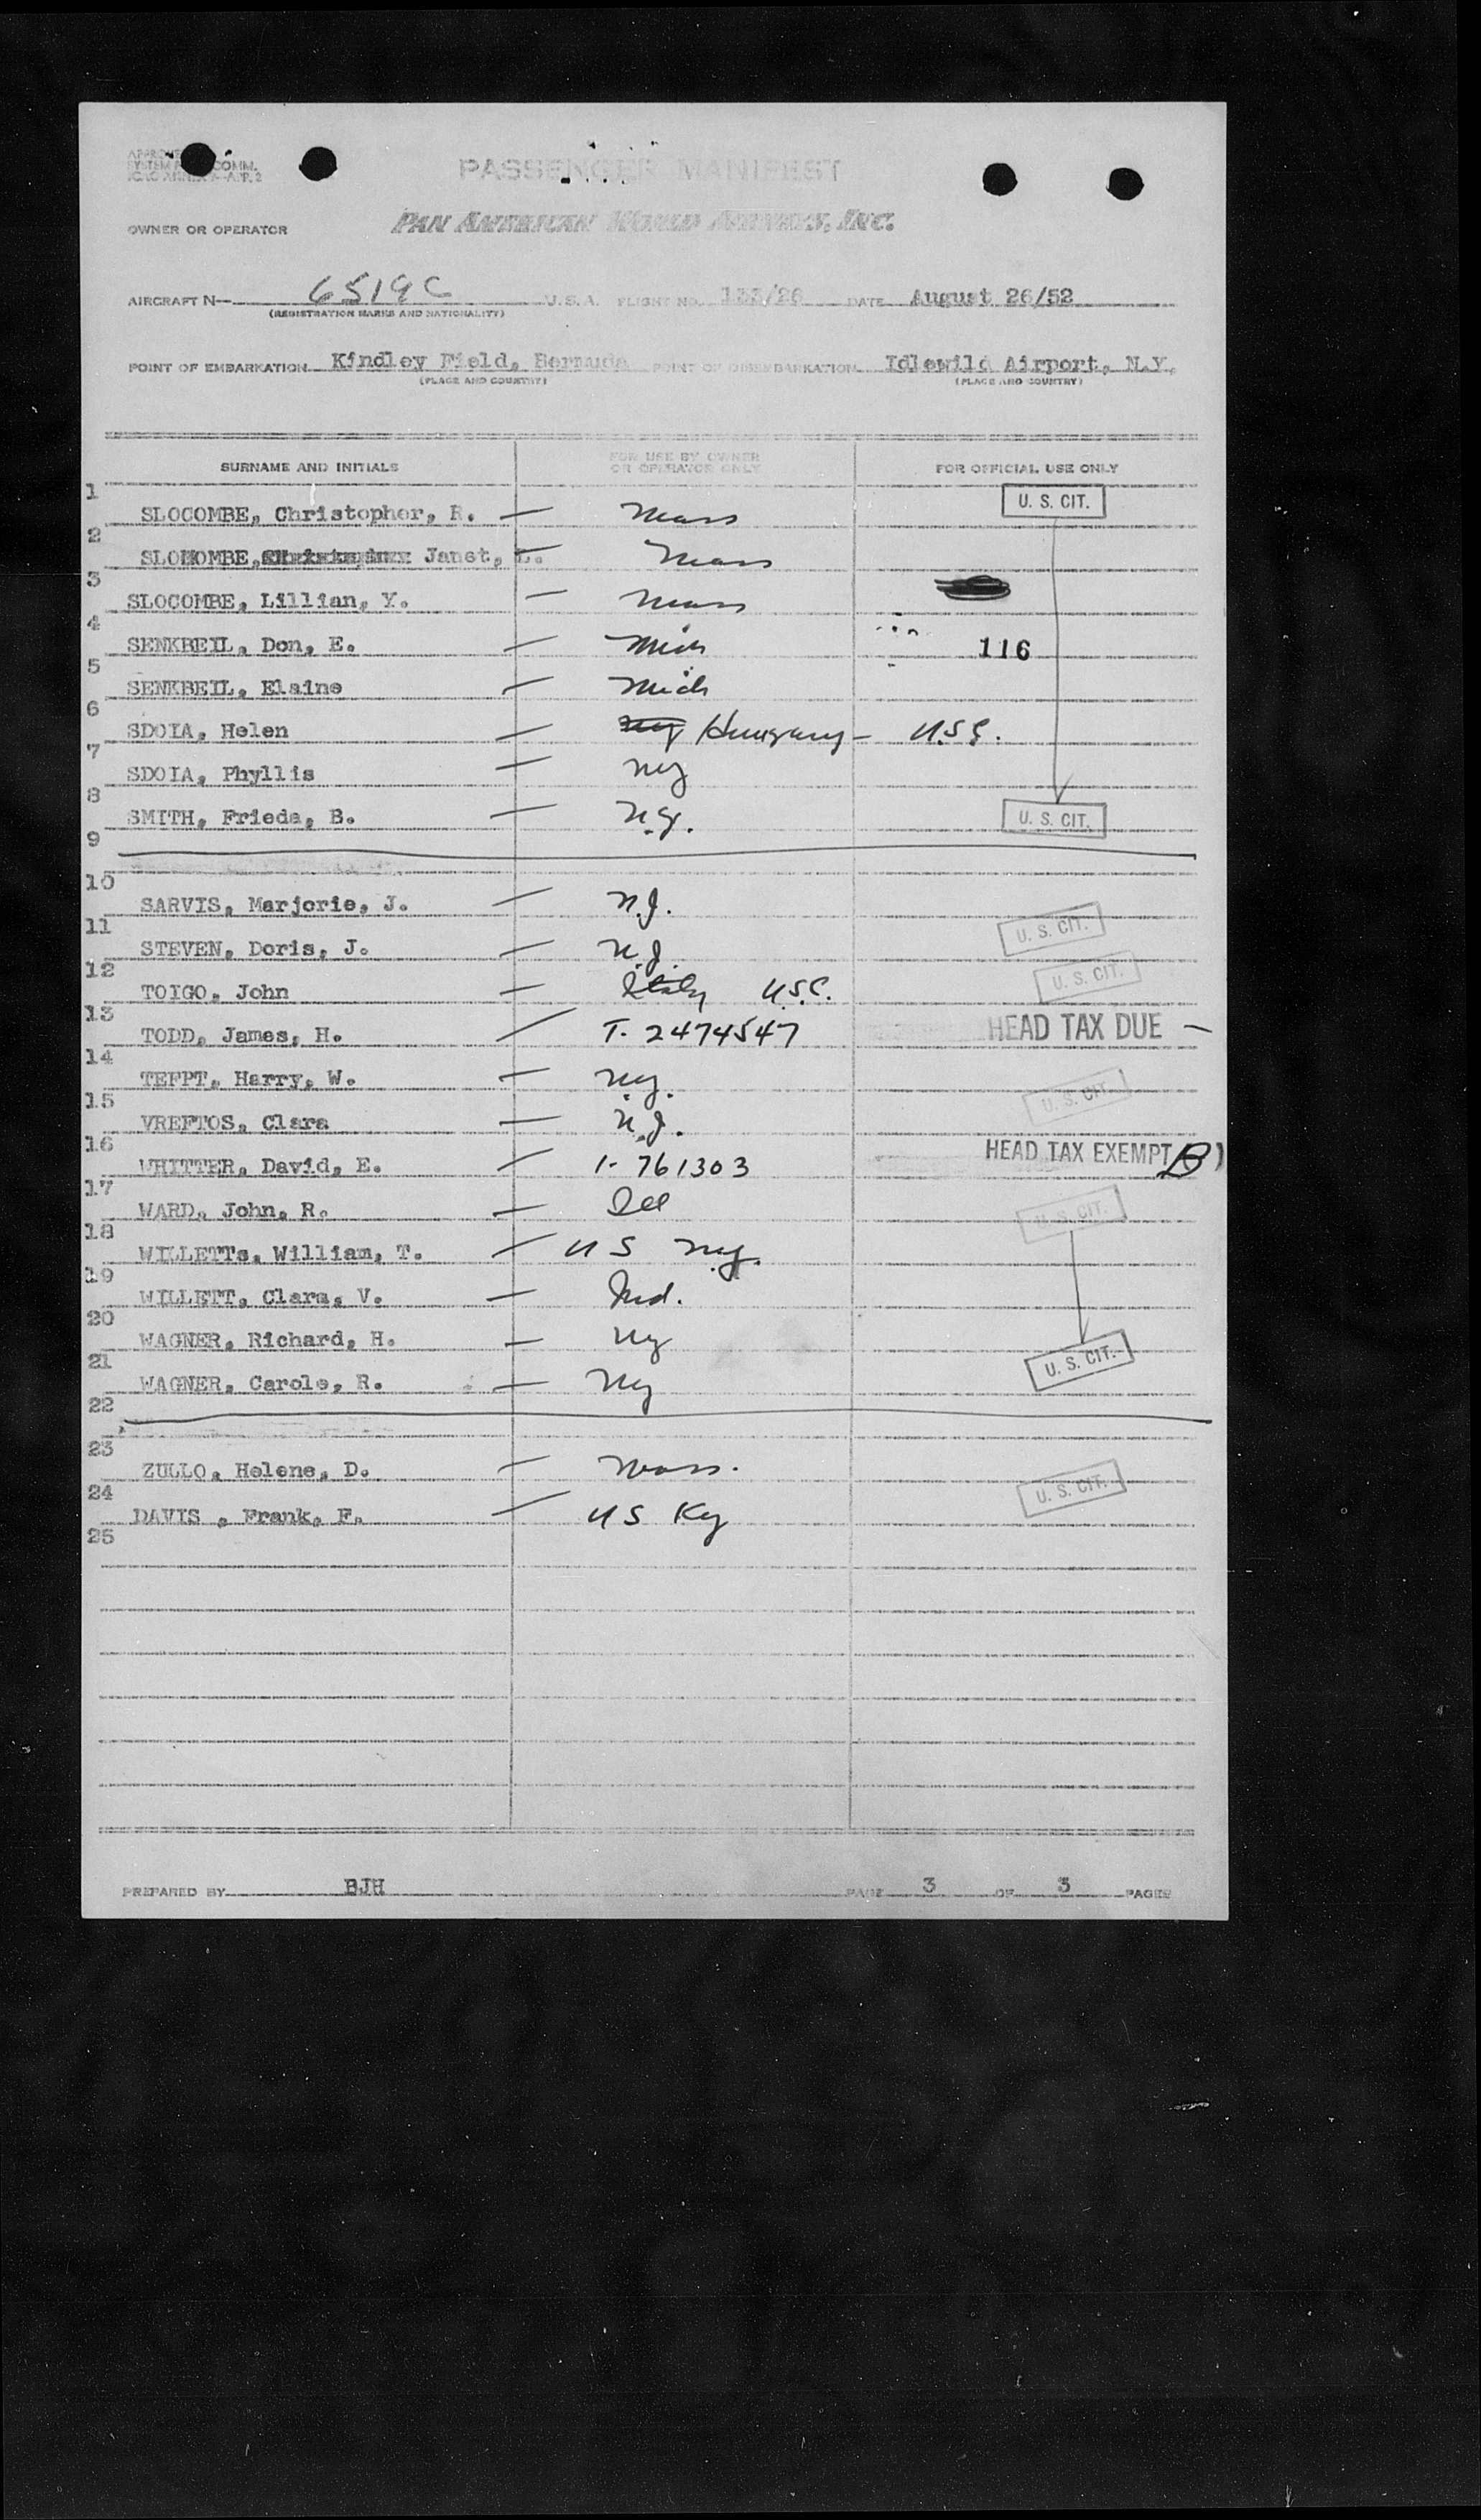 PASSENGER MANIFEST
OWNER OR OPERATOR PAN AMERICAN WORLD AIRWAYS, INC.
AIRCRAFT N— 6519C U.S.A. FLIGHT NO. 133/26 DATE August 26/52
(REGISTRATION MARKS AND NATIONALITY)
POINT OF EMBARKATION Kindley Field, Bermuda POINT OF DISEMBARKATION Idlewild Airport, N.Y.
(PLACE AND COUNTRY) (PLACE AND COUNTRY)
SURNAME AND INITIALS FOR USE BY OWNER OR OPERATOR ONLY FOR OFFICIAL USE ONLY
1 U. S. CIT.
SLOCOMBE, Christopher, R. — Mass
2
SLOCOMBE, Janet, L. — Mass
3
SLOCOMBE, Lillian, Y. — Mass
4
SENKBEIL, Don, E. — Mich 116
5
SENKBEIL, Elaine — Mich
6
SDOIA, Helen — NY Hungary — USC.
7
SDOIA, Phyllis — NY
8
SMITH, Frieda, B. — N.Y. U. S. CIT.
9
10
SARVIS, Marjorie, J. — N.J.
11 U. S. CIT.
STEVEN, Doris, J. — N.J.
12 U. S. CIT.
TOIGO, John — Italy USC.
13
TODD, James, H. — T- 2474547 HEAD TAX DUE —
14
TEFPT, Harry, W. — NY.
15 U. S. CIT.
VREFTOS, Clara — N.J.
16
WHITTER, David, E. — 1- 761303 HEAD TAX EXEMPT B)
17
WARD, John, R. — Ill U. S. CIT.
18
WILLETTs, William, T. — US NY.
19
WILLETT, Clara, V. — Ind.
20
WAGNER, Richard, H. — NY
21 U. S. CIT.
WAGNER, Carole, R. — NY
22
23
ZULLO, Helene, D. — Mass. U. S. CIT.
24
DAVIS , Frank, F. — US Ky
25
PREPARED BY BJH PAGE 3 OF 3 PAGES